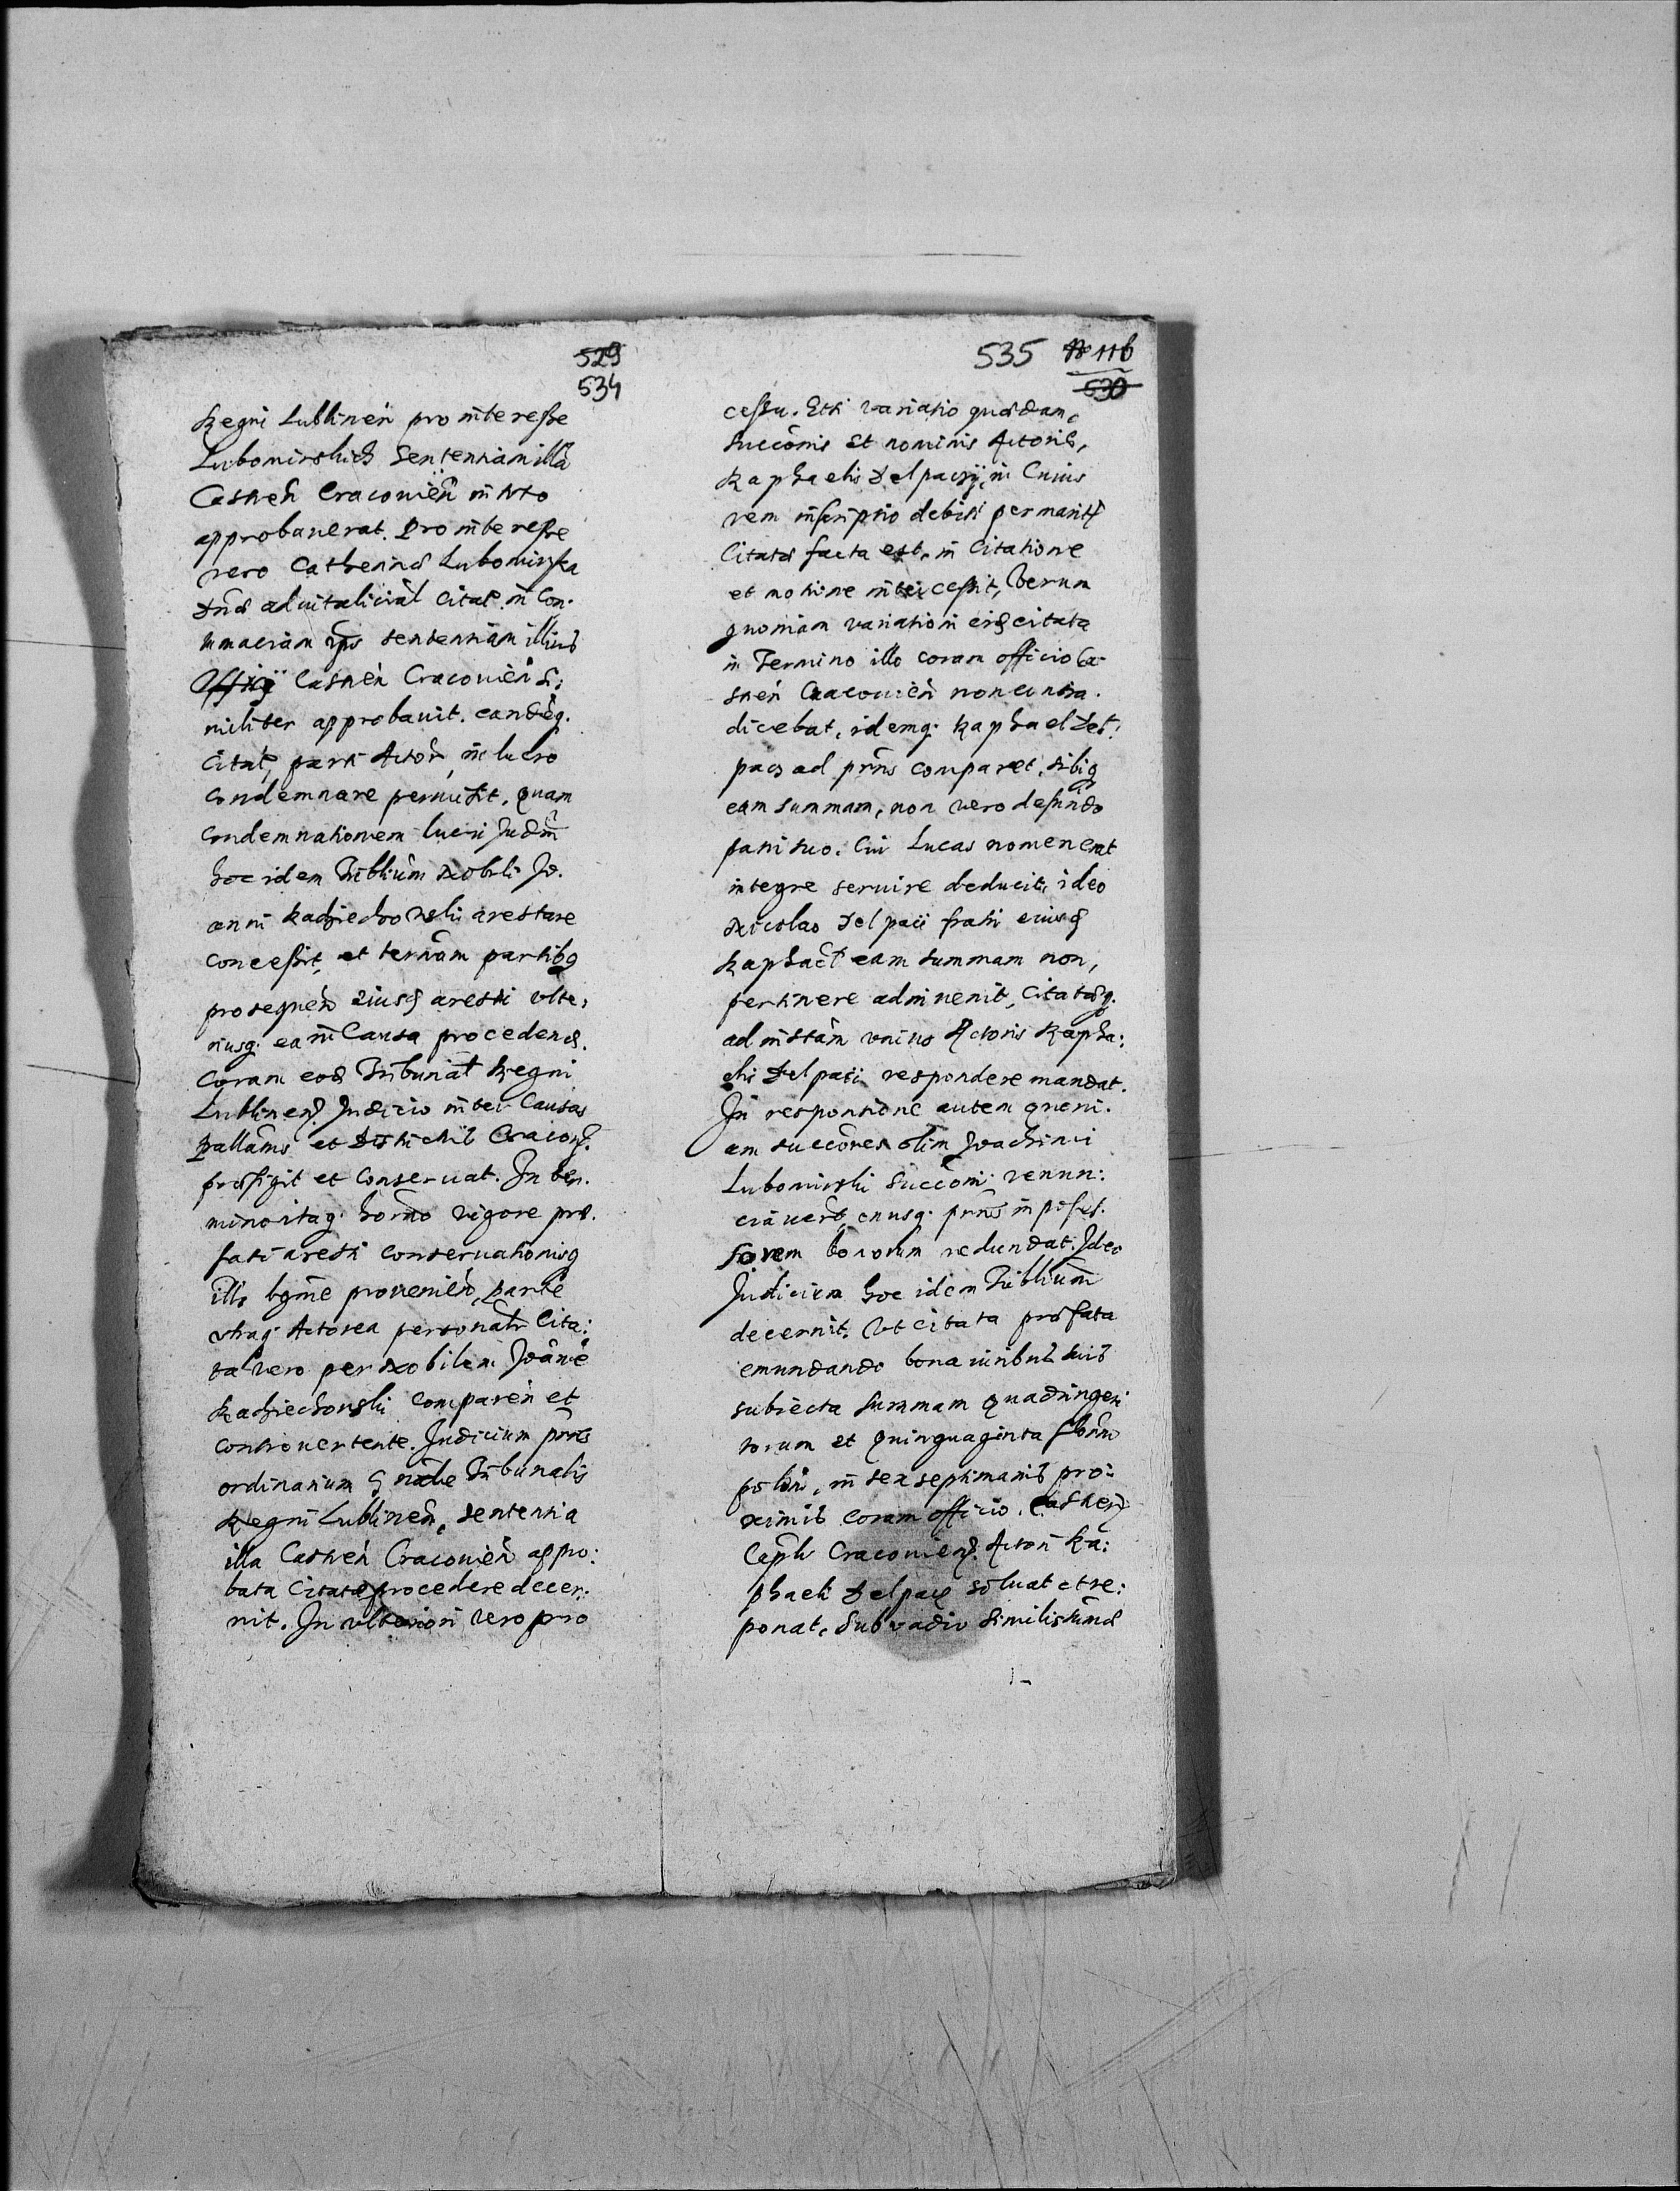 529
534
Regni Lublinen pro interesse
Lubomirskich Sententiam illa
Castren Cracovien in toto
approbauerat. Pro interesse
vero Catherinæ Lubomirska
Dnæ aduitalicial citat in Con-
tumaciam ips sententiam illius
Officij Castren Cracovien si:
militer approbauit. eandeq.
Citat, parti Actor, in lucro
Condemnare permisit. quam
condemnationem lucri Judm
hoc idem Triblium Nobili Jo.
anni Radziechowski arestare
concessit, et termm partibq
prosequen eiusd aresti vlte:
riusq. ea in Causa procedend.
Coram eod Tribunat Regni
Lublinen Judicio inter Causas
Pallams et Districtus Cracov.
præfigit et conseruat. In ter.
mino itaq. horno vigore præ.
fati aresti conseruationisq
illo ltgme provenien, parte
vtraq. Actorea personatr Cita:
ta vero per Nobilem Joane
Radziechowski comparen et
controuertente. Judicium pns
ordinarium gnale Tribunalis
Regni Lublinen, sententia
illa Castren Cracovien appro:
bata Citatæ procedere decer:
nit. In vlteriori vero pro
535 116
530
cessu. Etsi variatio quædam,
succonis et nominis Actoris,
Raphaelis Delpacij, in Cuius
rem inscriptio debiti per marit
Citatæ facta est, in Citatione
et notione intercessit, Verum
quoniam variationi eid citata
in Termino illo coram officio Ca-
stren Cracovien non contra.
dicebat, idemq. Raphael Del:
paci ad pns comparet, sibiq
eam summam, non vero defuncto
patri suo. Cui Lucas nomen erat
integre seruire deducit, ideo
Nicolao Delpaci fratri eiusd
Raphael eam summam non,
pertinere adinvenit, Citatæq.
ad instam vnius Actoris Rapha:
elis Delpaci respondere mandat.
In responsione autem quoni.
am succores olim Joachimi
Lubomirski succoni renun:
ciauert, onusq. pns in posses.
sorem bonorum redundat. Ideo
Judicium hoc idem Triblium
decernit. Vt citata præfata
emundando bona iuribus suis
subiecta summam quadringen
torum et quinquaginta floru
polon, in sex septimanis pro:
ximis coram officio, Castren
Capli Cracovien. Actori Ra:
phaeli Delpaci soluat et re:
ponat, sub vadio similis sumæ